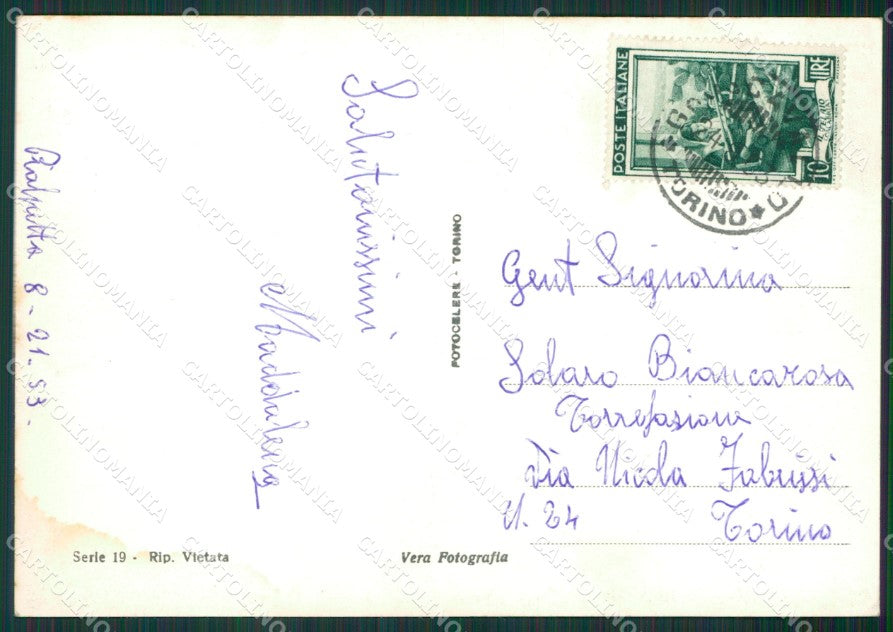 Salutonissimi
Maddalena
8 - 21. 53.
FOTOCELERE - TORINO
POSTE ITALIANE
LIRE
10
TORINO
Gent Signorina
Solaro Biancarosa
Torrefasione
Via Nicola Fabrissi
N. 24 Torino
Serie 19 - Rip. Vietata
Vera Fotografia
CARTOLINOMANIA